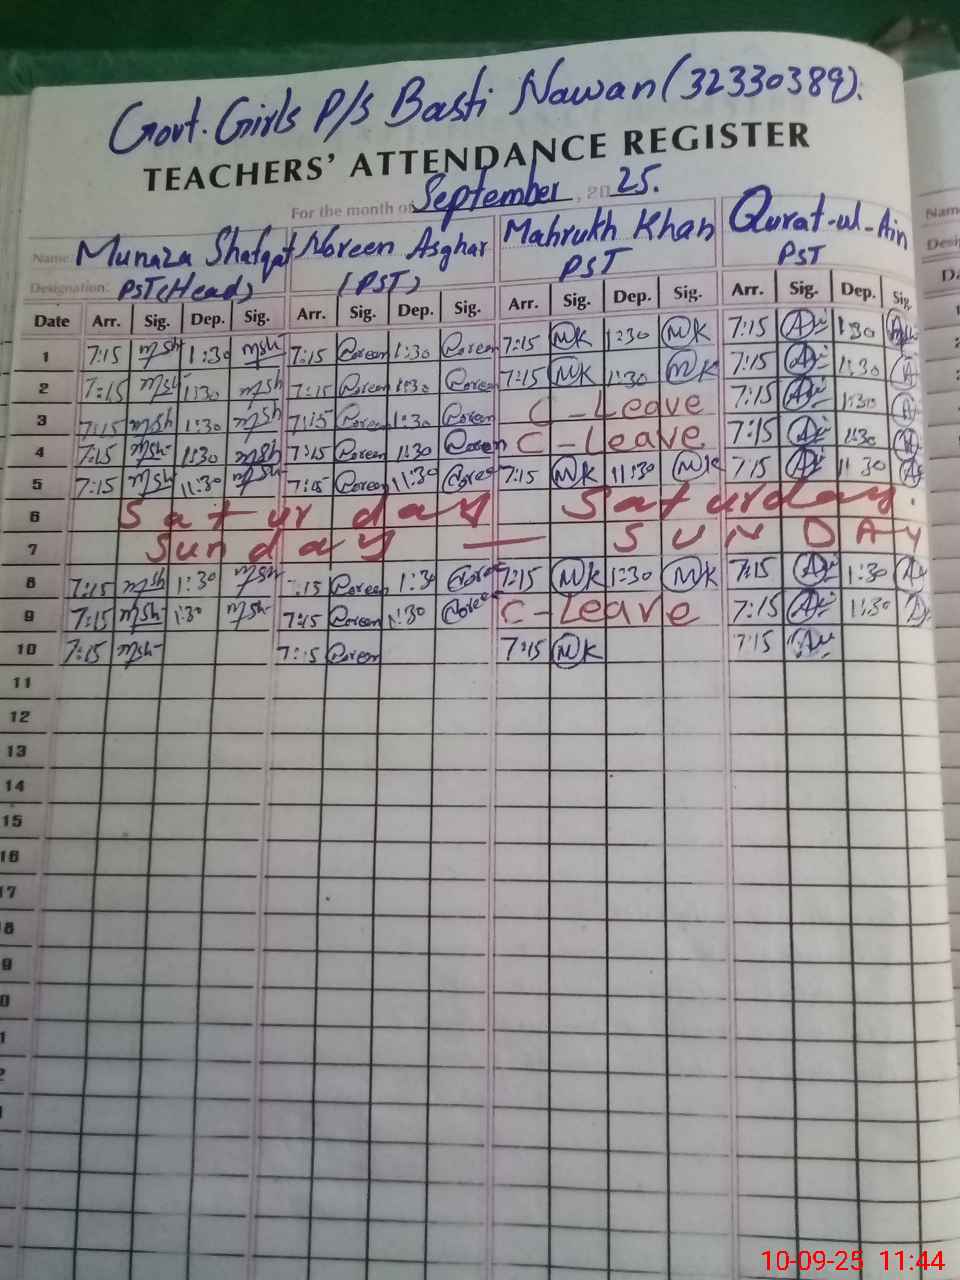 Govt. Girls P/s Basti Nawan (32330389).
TEACHERS' ATTENDANCE REGISTER
For the month of September, 2025.
Name: Munaza Shafqat Noreen Asghar Mahrukh Khan Qurat-ul-Ain
Designation: PST (Head) (PST) PST PST
Date Arr. Sig. Dep. Sig. Arr. Sig. Dep. Sig. Arr. Sig. Dep. Sig. Arr. Sig. Dep. Sig.
1 7:15 Msh 1:30 Msh 7:15 Noreen 1:30 Noreen 7:15 MK 1:30 MK 7:15 1:30
2 7:15 Msh 1:30 Msh 7:15 Noreen 1:30 Noreen 7:15 MK 1:30 MK 7:15 1:30
3 7:15 Msh 1:30 Msh 7:15 Noreen 1:30 Noreen C-Leave 7:15 1:30
4 7:15 Msh 1:30 Msh 7:15 Noreen 1:30 Noreen C-Leave 7:15 1:30
5 7:15 Msh 11:30 Msh 7:15 Noreen 11:30 Noreen 7:15 MK 11:30 MK 7:15 11:30
6 Saturday Saturday.
7 Sunday — SUNDAY
8 7:15 Msh 1:30 Msh :15 Noreen 1:30 Noreen 7:15 MK 1:30 MK 7:15 1:30
9 7:15 Msh 1:30 Msh 7:15 Noreen 1:30 Noreen C-Leave 7:15 1:30
10 7:15 Msh 7:15 Noreen 7:15 MK 7:15
11
12
13
14
15
16
17
8
9
0
1
2
10-09-25 11:44